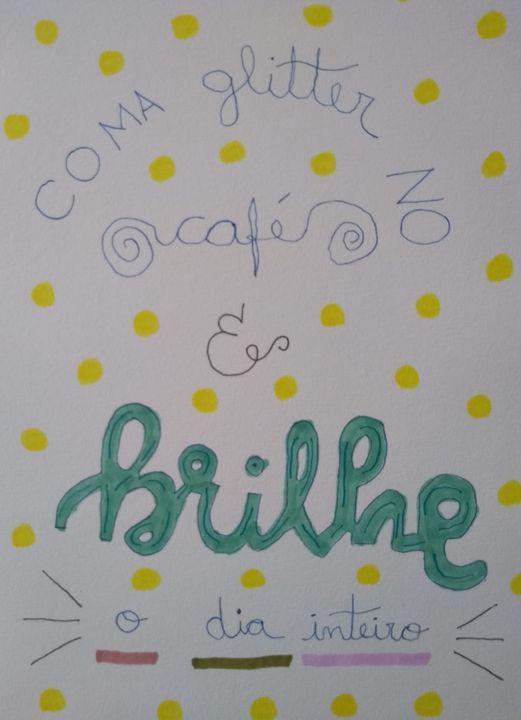 COMA glitter NO
café
&
brilhe
o dia inteiro